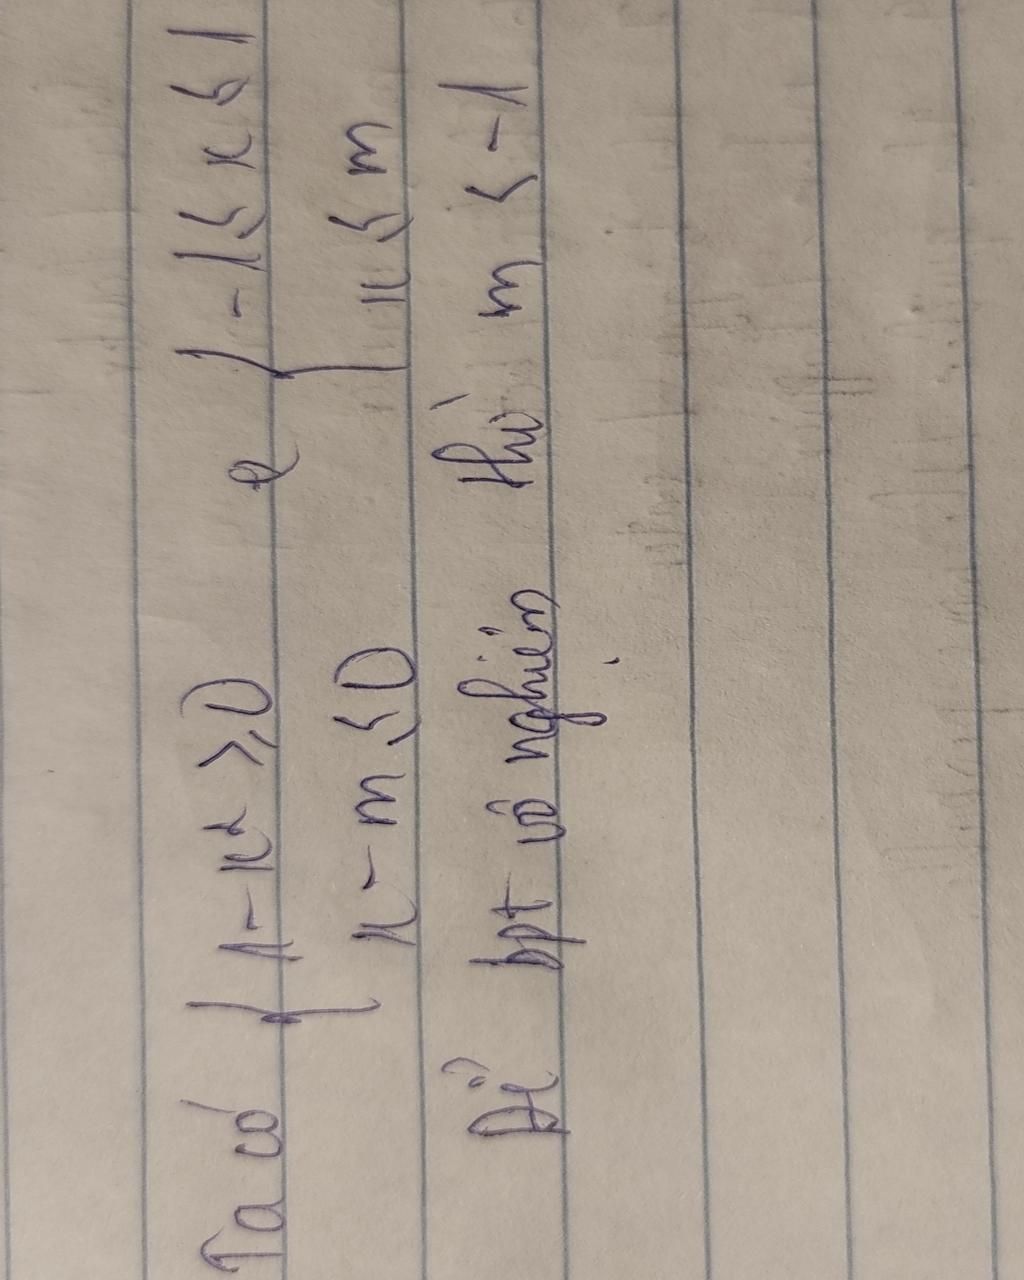 Ta có { 1-x² ≥ 0 <=> { -1 ≤ x ≤ 1
x - m ≤ 0 x ≤ m
Để bpt vô nghiệm thì m < -1